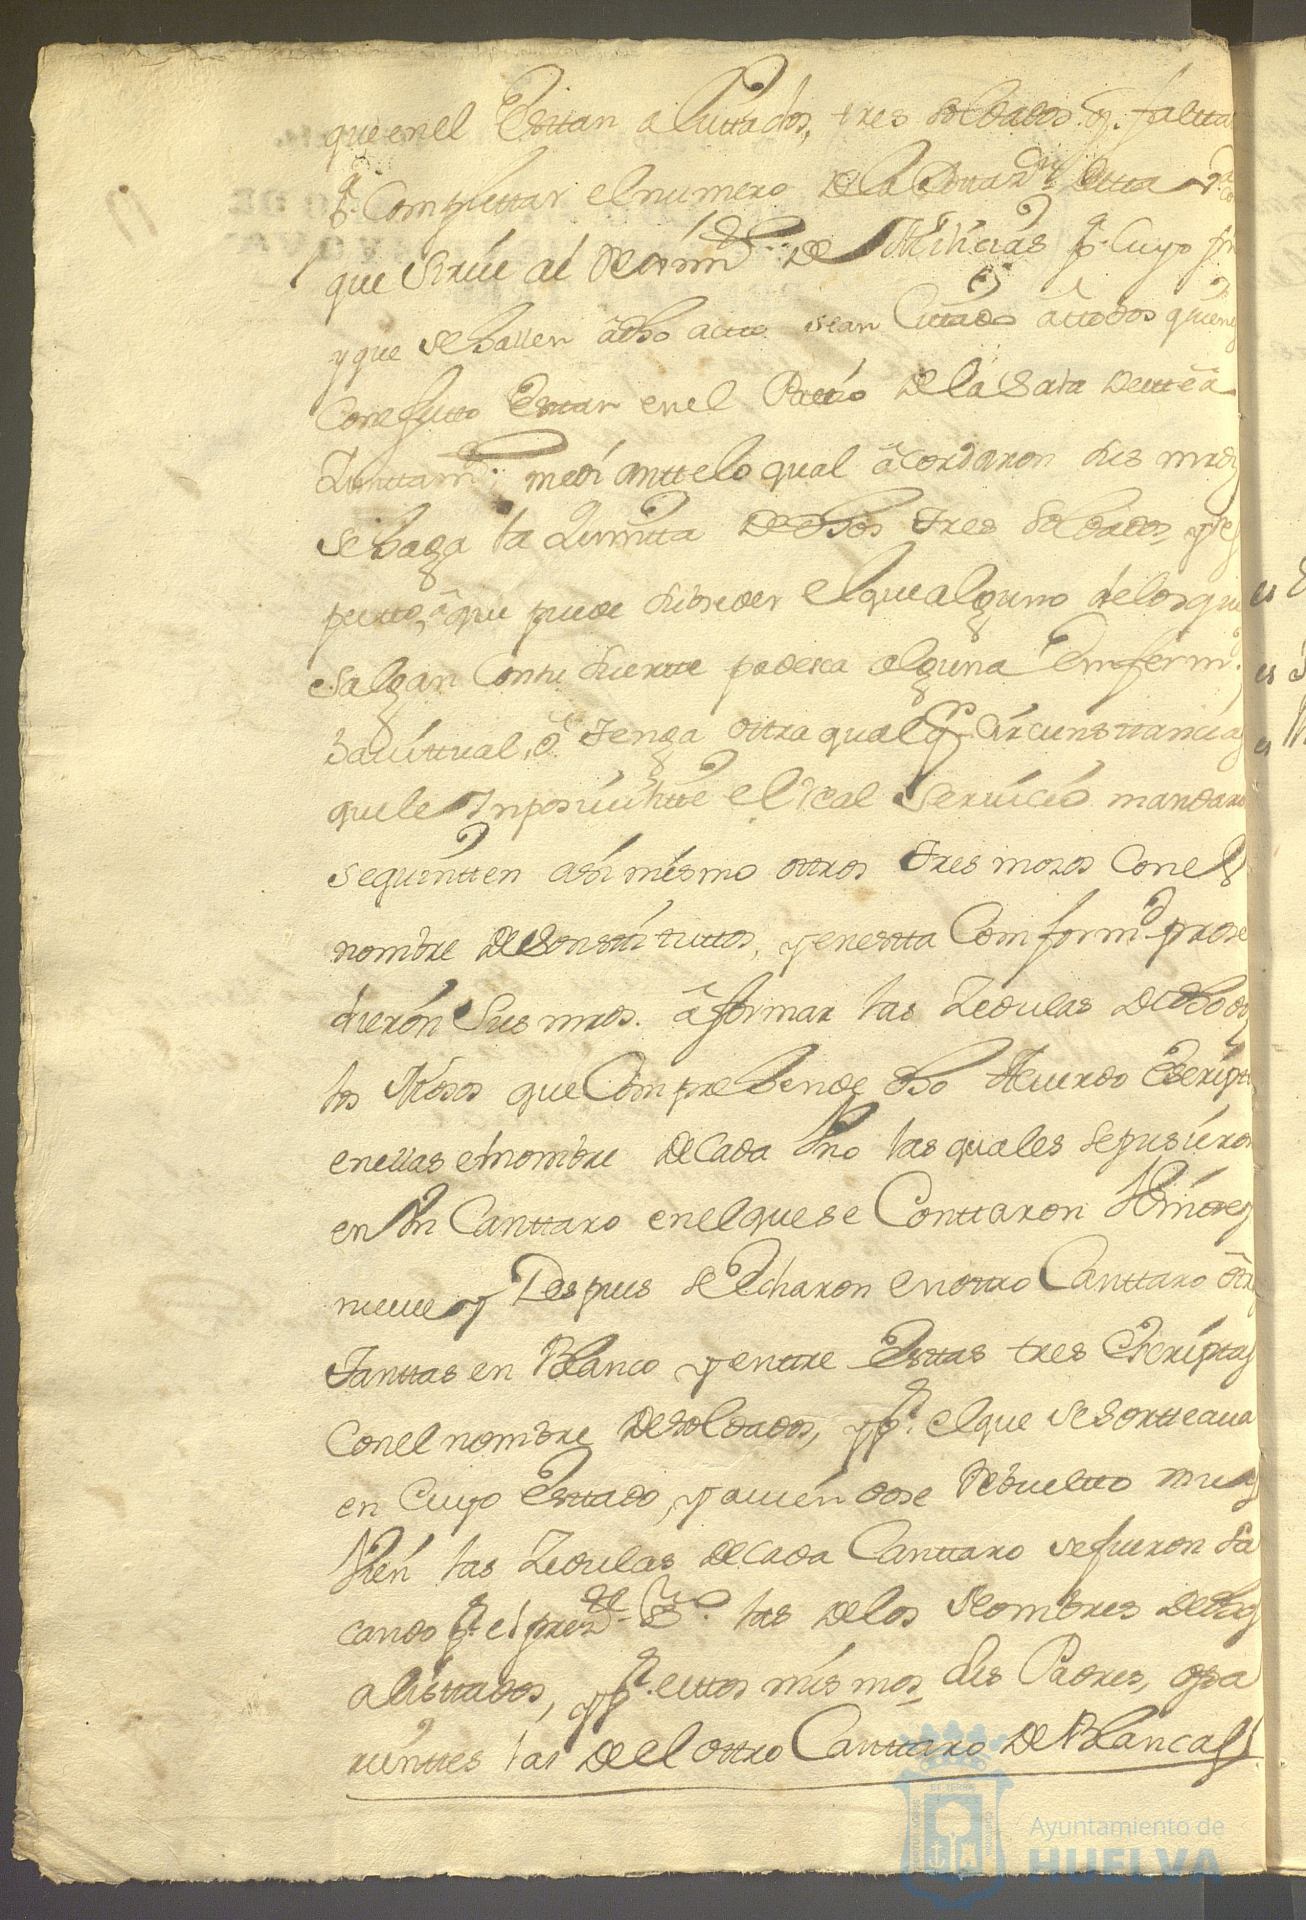 que en el esttan alisttados, tres soldados q. faltta
pª Complettar el numero de la Dottazn. desta va.
que sirve al Reximto. de Milicias pª Cuyo fin
y que se hallen â dho actto sean Cittados â ttodos quienes
Conefectto esttan en el Pattio de la Sala de estte â
Iunttamto; medianttelo qual âcordaron sus mrds
se haga la Quintta de dhos tres soldados, y res
pectto, â que puede suseder el que alguno de los que
salgan Con su suertte padesca alguna emfermd.
havittual, ô tenga ottra qualqra. circunsttancias
que le Inposivilitte el Real servicio mandaro
se quintten asi mismo ottros tres mosos Con el
nombre de sonstituttos, y en estta Comformd. prose
dieron sus mrds. â formar las Zedulas de dhos
los Mosos que Comprehende dho Acuerdo Escriptto
en ellas el nombre de cada Vno las quales se pusieron
en Vn Canttaro en el que se Conttaron
nueve y Despues se Echaron en ottro Canttaro ôtr
Tanttas en Blanco y enttre Esttas tres Escriptas
Con el nombre de soldados, y pr. el que se sortteava
en Cuyo Esttado, y aviendose Rebueltto muy
Vien las Zedulas de cada Canttaro se fueron sa
cando pr. el presentte Esno. las de los Nombres de los
alisttados, y pr. esttos mismos, sus Padres, o pa
rienttes las de el ottro Canttaro de Blancas
Ayuntamiento de
HUELVA